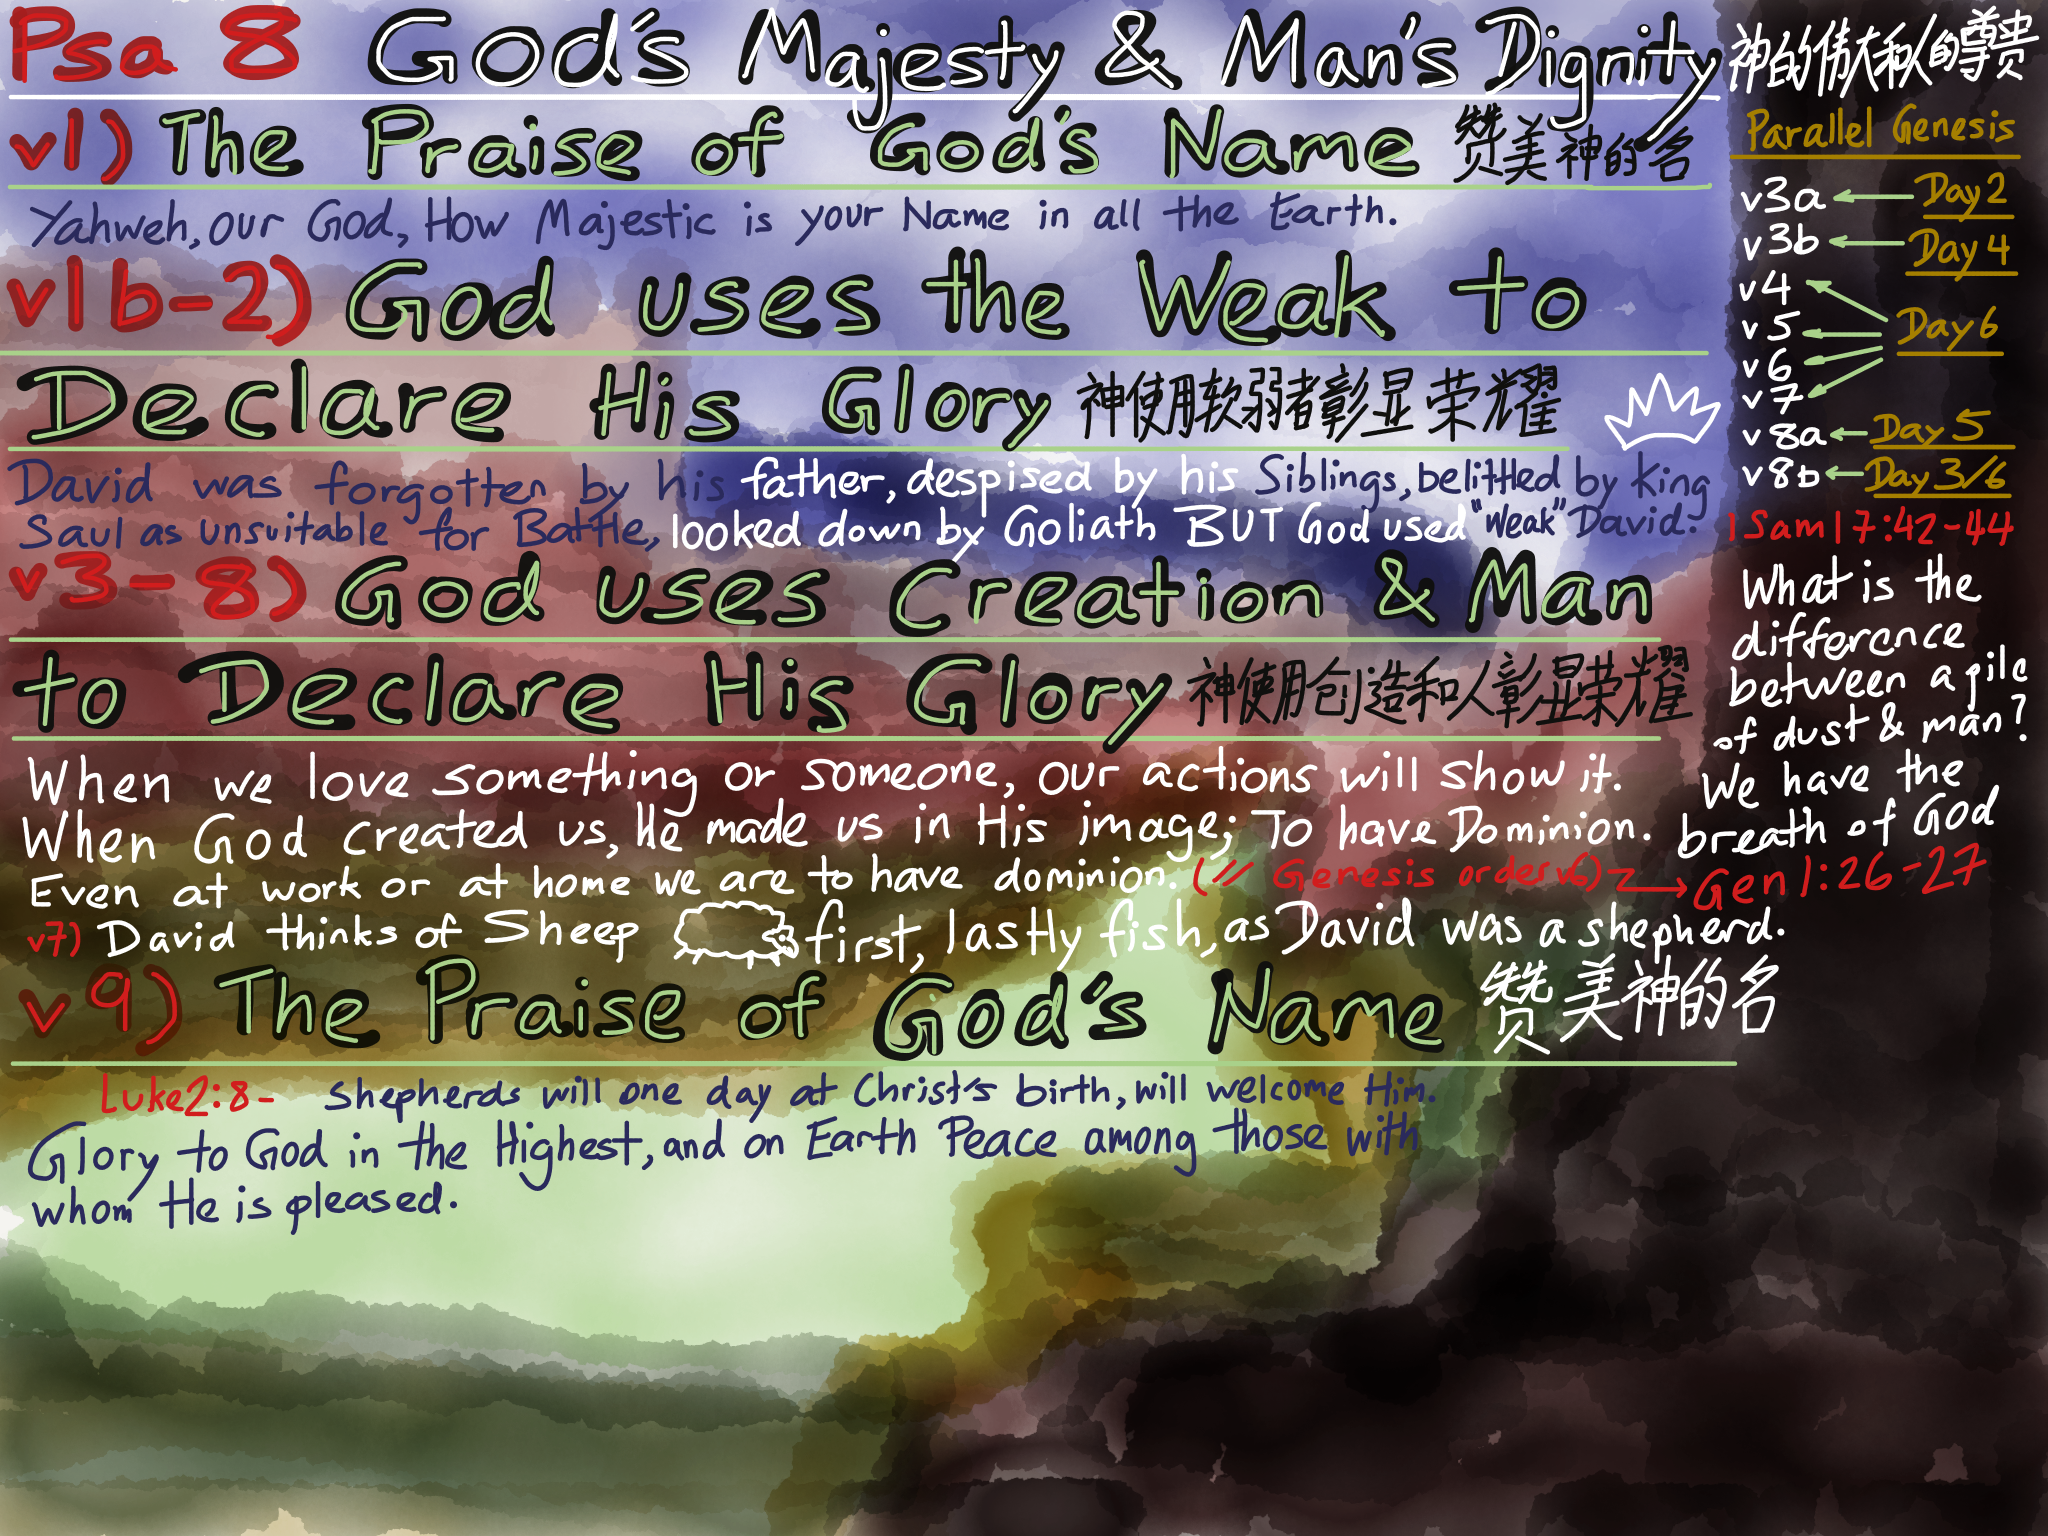 Psa 8 God's Majesty & Man's Dignity 神的伟大和人的尊贵
v1) The Praise of God's Name 赞美神的名
Yahweh, our God, How Majestic is your Name in all the Earth.
v1b-2) God uses the Weak to
Declare His Glory 神使用软弱者彰显荣耀
David was forgotten by his father, despised by his Siblings, belittled by King
Saul as unsuitable for Battle, looked down by Goliath BUT God used "Weak" David.
v3-8) God uses Creation & Man
to Declare His Glory 神使用创造和人彰显荣耀
When we love something or someone, our actions will show it.
When God created us, He made us in His image; To have Dominion.
Even at work or at home we are to have dominion. (// Genesis order v6)
v7) David thinks of Sheep first, lastly fish, as David was a shepherd.
v9) The Praise of God's Name 赞美神的名
Luke2:8- Shepherds will one day at Christ's birth, will welcome Him.
Glory to God in the Highest, and on Earth Peace among those with
whom He is pleased.
Parallel Genesis
v3a Day 2
v3b Day 4
v4
v5 Day 6
v6
v7
v8a Day 5
v8b Day 3/6
1 Sam 17:42-44
What is the
difference
between a pile
of dust & man?
We have the
breath of God
Gen 1:26-27